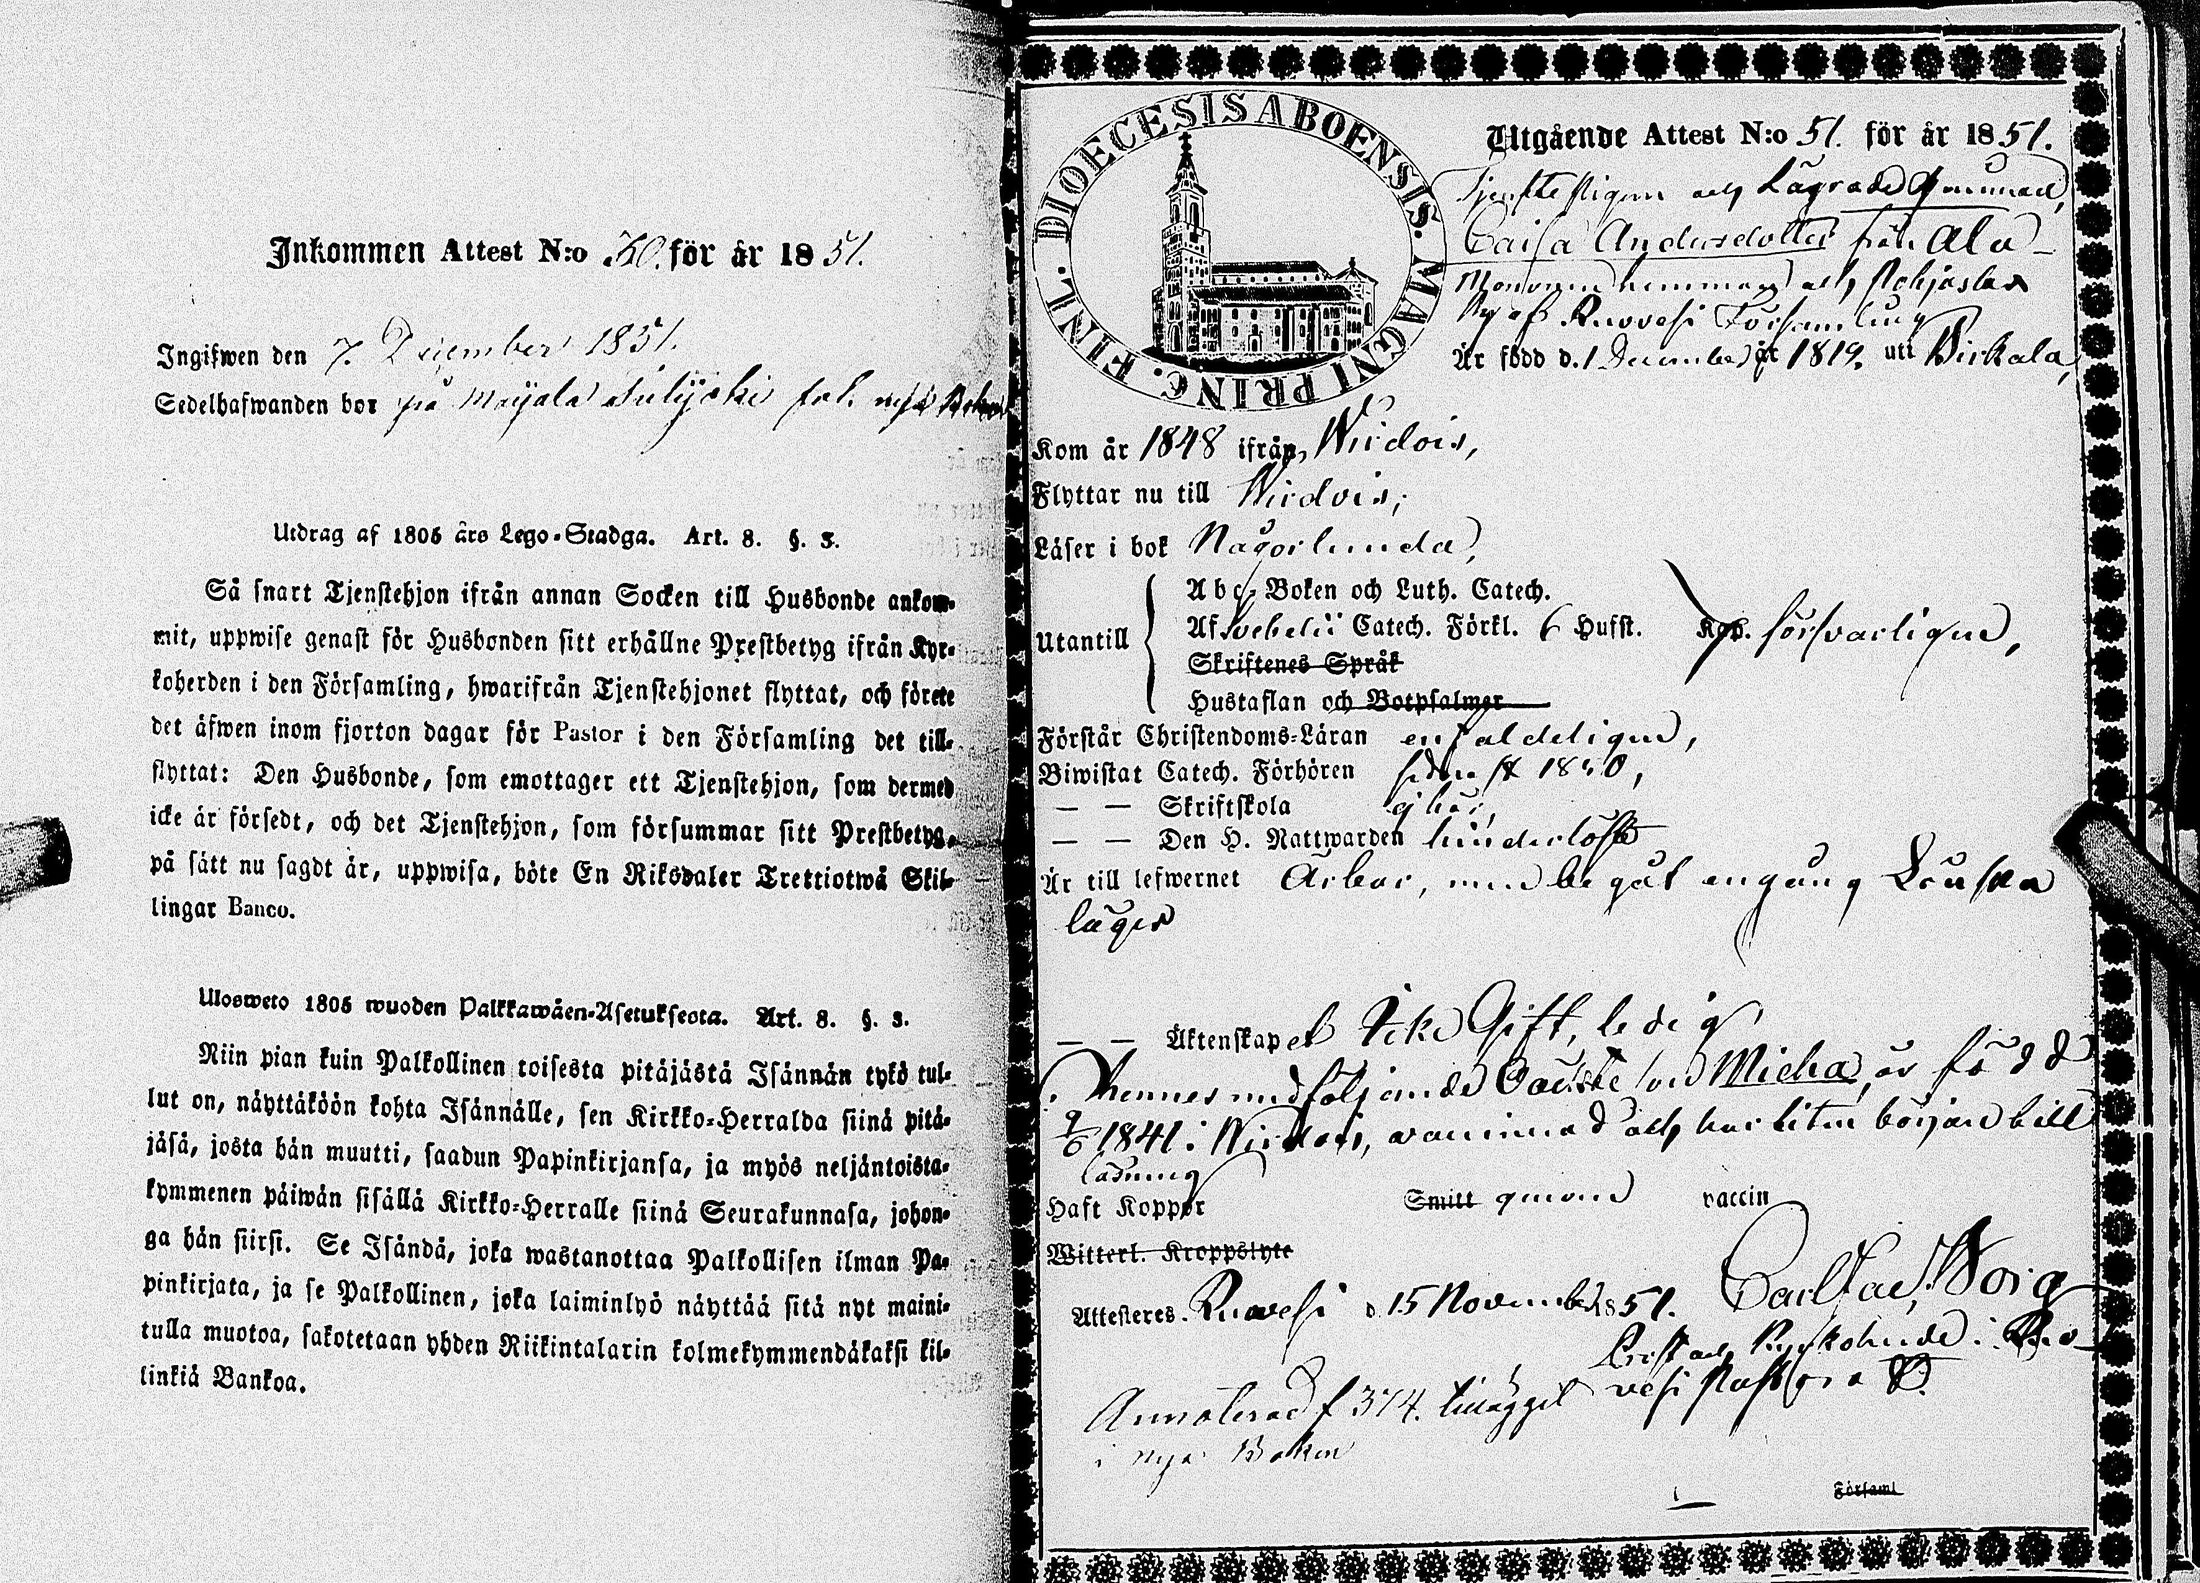 Inkommen Attest N:o 50. för år 1851.
Ingifwen den 7. December 1851.
Sedelhafwanden bor på
Utdrag af 1805 års Lego-Stadga. Art. 8. §. 3.
Så snart Tjenstehjon ifrån annan Socken till Husbonde ankom-
mit, uppwise genast för Husbonden sitt erhållne Prestbetyg ifrån Kyr-
koherden i den Församling, hwarifrån Tjenstehjonet flyttat, och förete
det äfwen inom fjorton dagar för Pastor i den Församling det till-
flyttat: Den Husbonde, som emottager ett Tjenstehjon, som dermed
icke är försedt, och det Tjenstehjon, som försummar sitt Prestbetyg,
på sätt nu sagdt är, uppwisa, böte En Riksdaler Trettiotwå Skil-
lingar Banco.
Ulosweto 1805 wuoden Palkkawäen-Asetuksesta. Art. 8. §. 3.
Niin pian kuin Palkollinen toisesta pitäjästä Isännän tykö tul-
lut on, näyttäköön kohta Isännälle, sen Kirkko-Herralda siinä pitä-
jäsä, josta hän muutti, saadun Papinkirjansa, ja myös neljäntoista-
kymmenen päiwän sisällä Kirkko-Herralle siinä Seurakunnasa, johon-
ga hän siirsi. Se Isändä, joka wastanottaa Palkollisen ilman Pa-
pinkirjata, ja se Palkollinen, joka laiminlyö näyttää sitä nyt maini-
tulla muotoa, sakotetaan yhden Riikintalarin kolmekymmendäkaksi kil-
linkiä Bankoa.
FINL. DIOECESIS ABOENSIS. MAGNI PRINC.
Utgående Attest N:o 51. för år 1851.
Tjenstepigan och Lägrade
Caisa Andersdotter från Ala-
hemman och Pohjaslax
By af Ruovesi Församling
Är född d. 1 December år 1819. uti Birkala,
Kom år 1848 ifrån Wirdois,
Flyttar nu till Wirdois;
Läser i bok Någorlunda,
Utantill
Abc-Boken och Luth. Catech.
Af Svebelii Catech. Förkl. 6 Hufst. Kap. försvarligen,
Skriftenes Språk
Hustaflan och Botpsalmer
Förstår Christendoms-Läran enfaldeligen,
Biwistat Catech. Förhören sedan 1850,
— — Skriftskola
— — Den H. Nattwarden hinderlöst
Är till lefwernet Ärbar, men begåt engång Lönska
läger
— — Äktenskapet Icke Gift, ledig
hennes medföljande Oäckte son Micha, är född
1841 i Wirdois, vaccinerad och har liten början till
läsning
Haft Koppor Smitt genom vaccin
Witterl. Kroppslyte
Attesteras. Ruovesi d. 15 November 1851. Carl Borg
Prost och Kyrkoherde i Ruo-
vesi Pastorat
Annoterad f 374.
i nya Boken
Församl